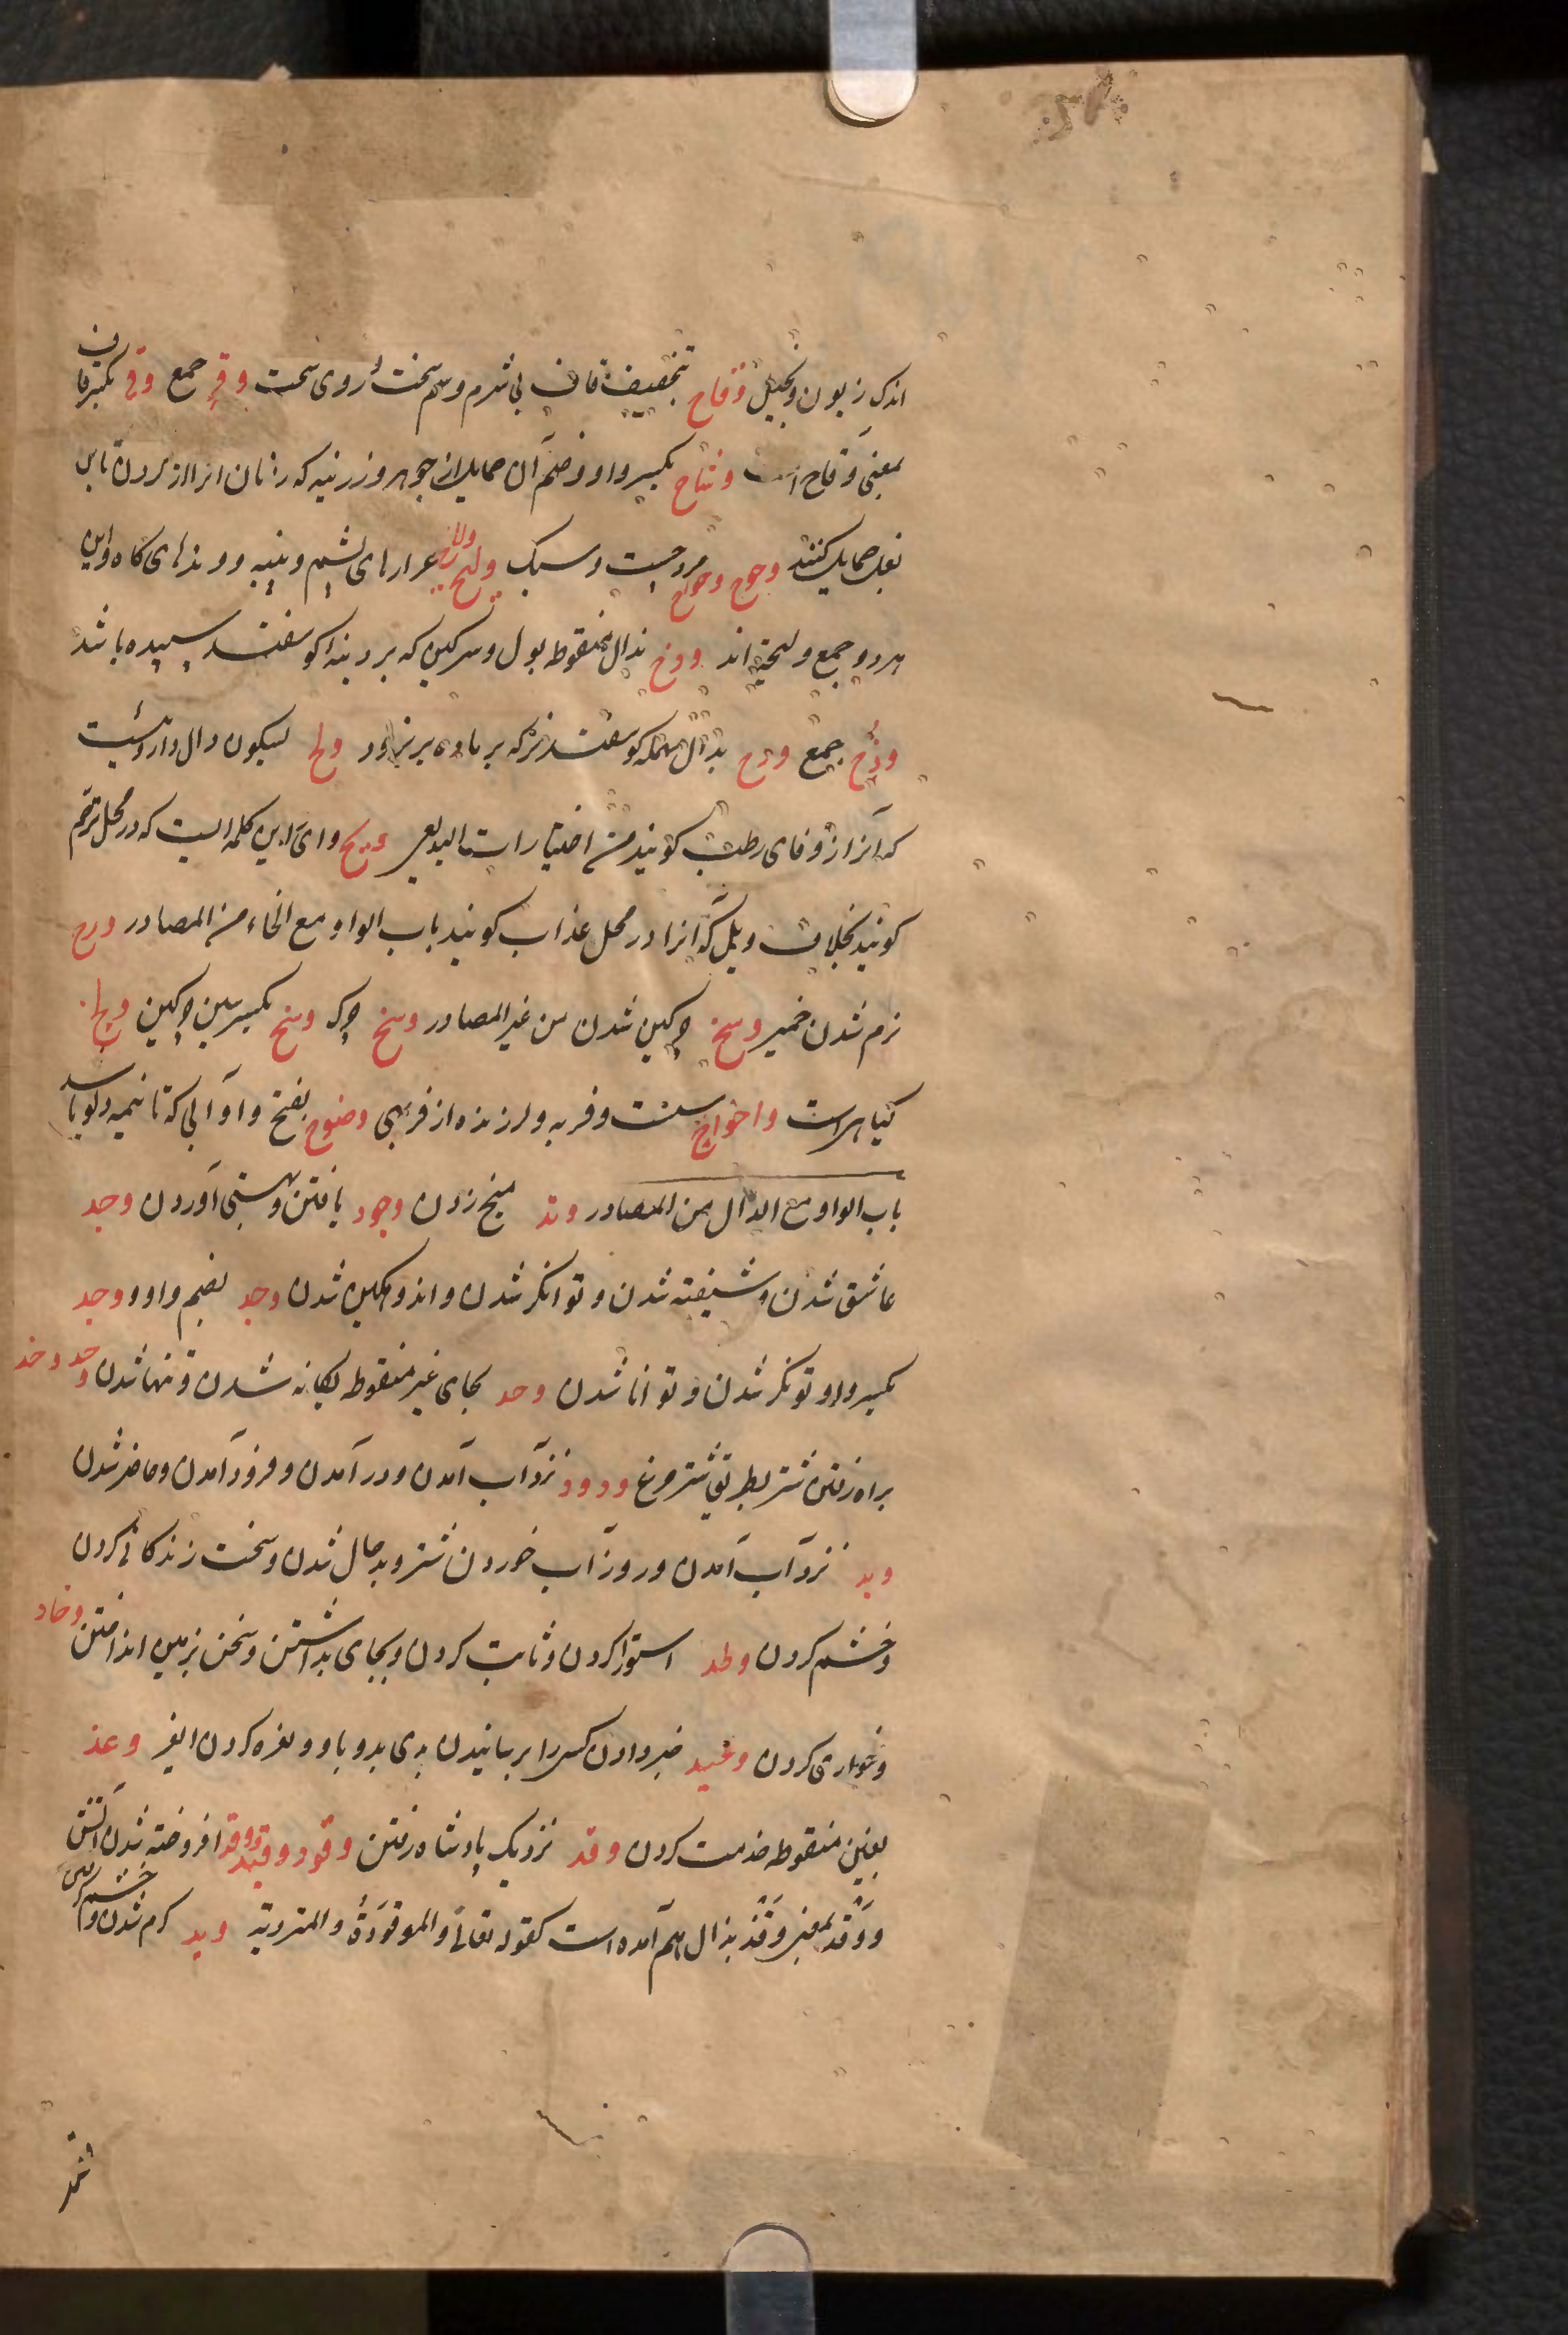 اندک زبون و بخیل وقاح بتخفیف قاف بی شرم و سم سخت و روی سخت وقح جمع وقح بکسر قاف
بمعنی وقاح است وشاح بکسر واو و ضم آن حمایل از جوهر و زرینه که زنان از گردن تا بن
بغل حمایل کنند وحوح وحواح مرد چست و سبک ولیح ولایح غرارهای پشم و پنبه و بندهای کاه و این
هردو جمع ولیحة اند وذح بذال منقوطه بول و سرکین که بر دنبه کوسفند سپیده باشد
وذح جمع ودح بدال مهمله کوسفند نر که بر ماده بر نرود بسکون دال داروئیست
که آنرا زوفای رطب کویند من اختیارات البدیعی ویح وای این کلمه ایست که در محل ترحم
کویند بخلاف ویل که آنرا در محل عذاب کویند باب الواو مع الخاء من المصادر ورخ
نرم شدن خمیر وسخ چرکین شدن من غیر المصادر وسخ چرک وسخ بکسر سین چرکین
کیاهی است وخواخ سست و فربه و لرزنده از فربهی وضوخ بفتح واو آبی که تا نیمه دلو باشد
باب الواو مع الدال من المصادر وتد میخ زدن وجود یافتن و هستی آوردن وجد
عاشق شدن و شیفته شدن و توانکر شدن و اندوهکین شدن وجد بضم واو و وجد
بکسر واو توانکر شدن و توانا شدن وحد بحای غیر منقوطه یکانه شدن و تنها شدن وخد وخد
براه رفتن شتر بطریق شتر مرغ ورود نزد آب آمدن و در آمدن و فرود آمدن و حاضر شدن
نزد آب آمدن و روز آب خوردن شتر و بدحال شدن و سخت زندکانی کردن
و خشم کردن وطد استوار کردن و ثابت کردن و بجای بداشتن و سخن بزمین انداختن
و خواری کردن وعید خبر دادن کسی را برسانیدن بدی بدو باو و نعره کردن وغد
بغین منقوطه خدمت کردن وفد نزدیک پادشاه رفتن وقود وقید وقد افروخته شدن آتش
و وقد بمعنی وقذ بذال هم آمده است کقوله تعالی والموقوذة والمتردیة ومد کرم شدن و خشم